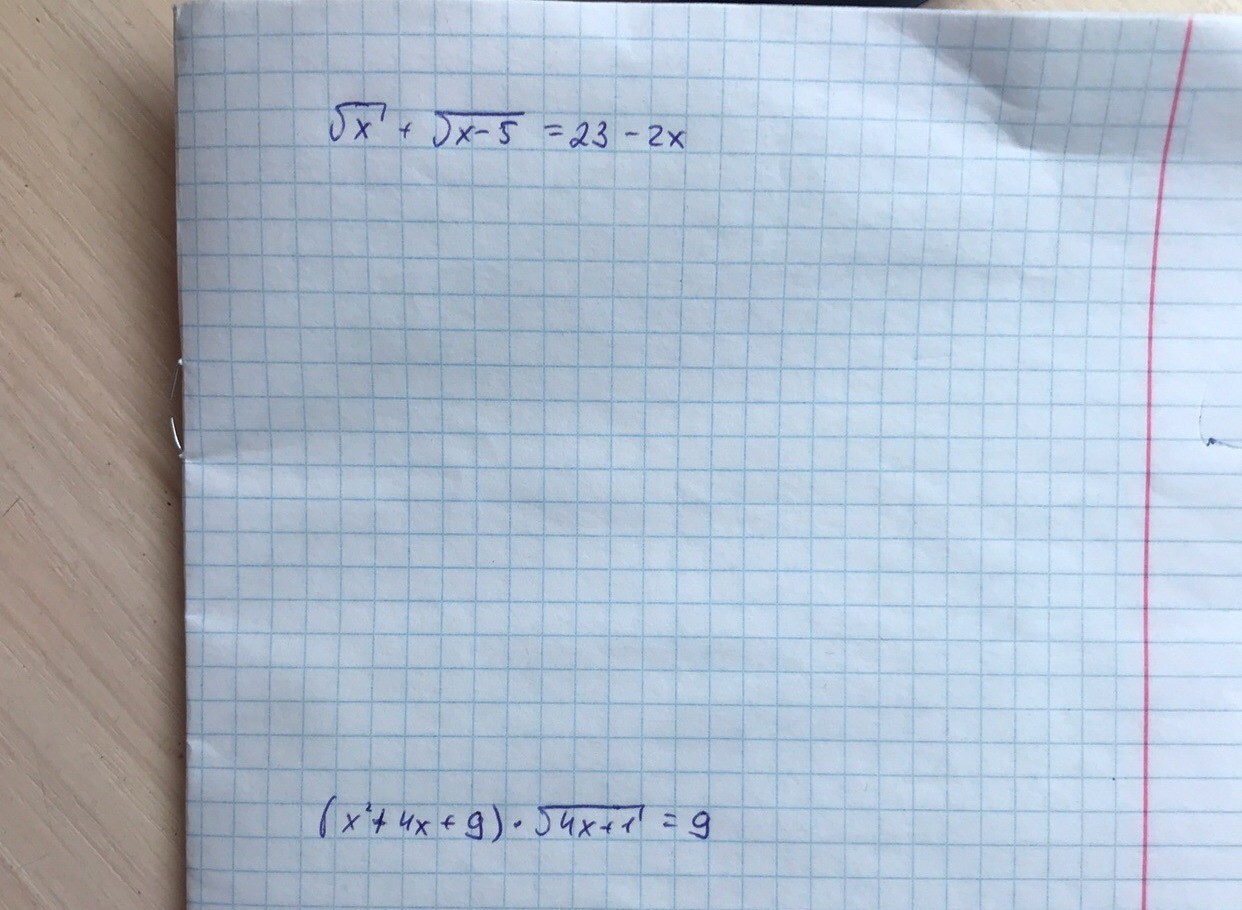 √x + √x-5 = 23 - 2x
(x² + 4x + 9) · √4x+1 = 9